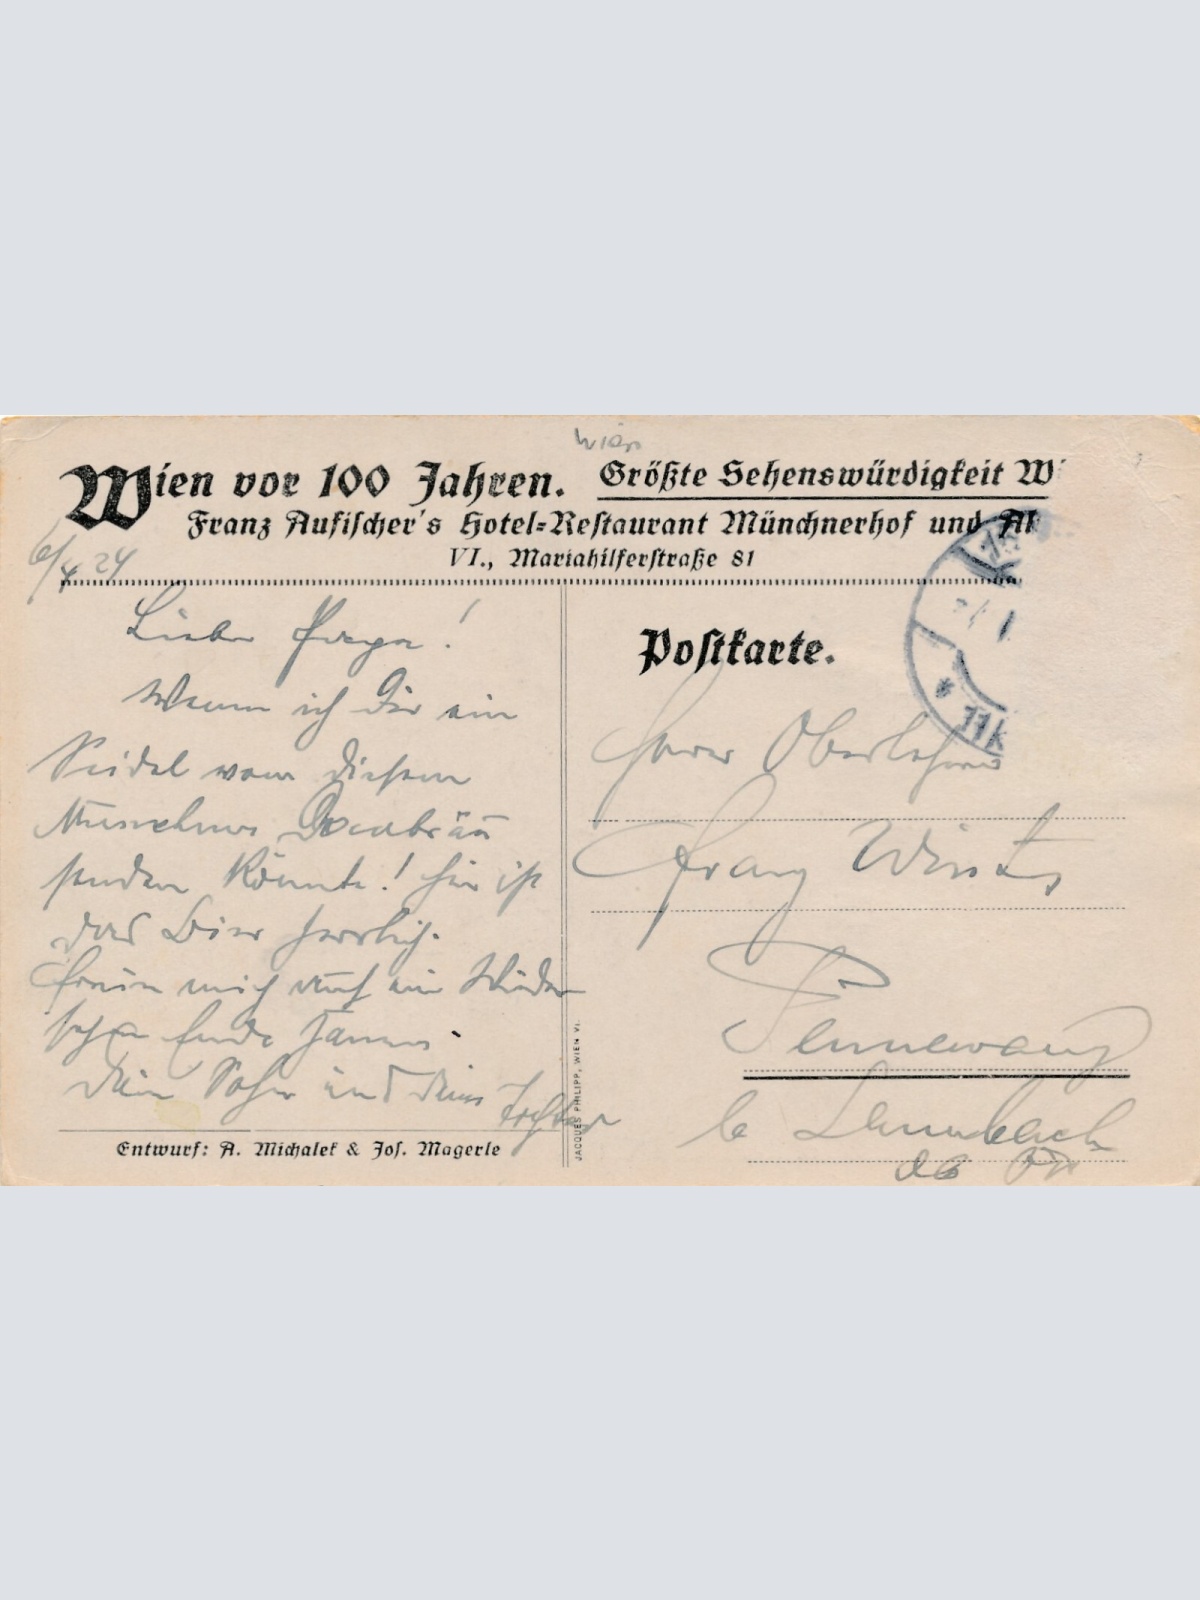 Wien
Wien vor 100 Jahren. Größte Sehenswürdigkeit Wi
Franz Aufischer's Hotel=Restaurant Münchnerhof und Al
VI., Mariahilferstraße 81
6/4 24
Lieber !
Wenn ich Dir ein
Seidel vom diesem
Münchner
senden könnte! Hier ist
das Bier herrlich.
Freuen mich auf ein Wieder
sehen Ende
Dein Sohn und Deine Tochter
Entwurf: A. Michalek & Jos. Magerle
JACQUES PHILIPP, WIEN VI.
Postkarte.
* 11k
Herrn Oberlehrer
Franz
Pennewang
b Lambach